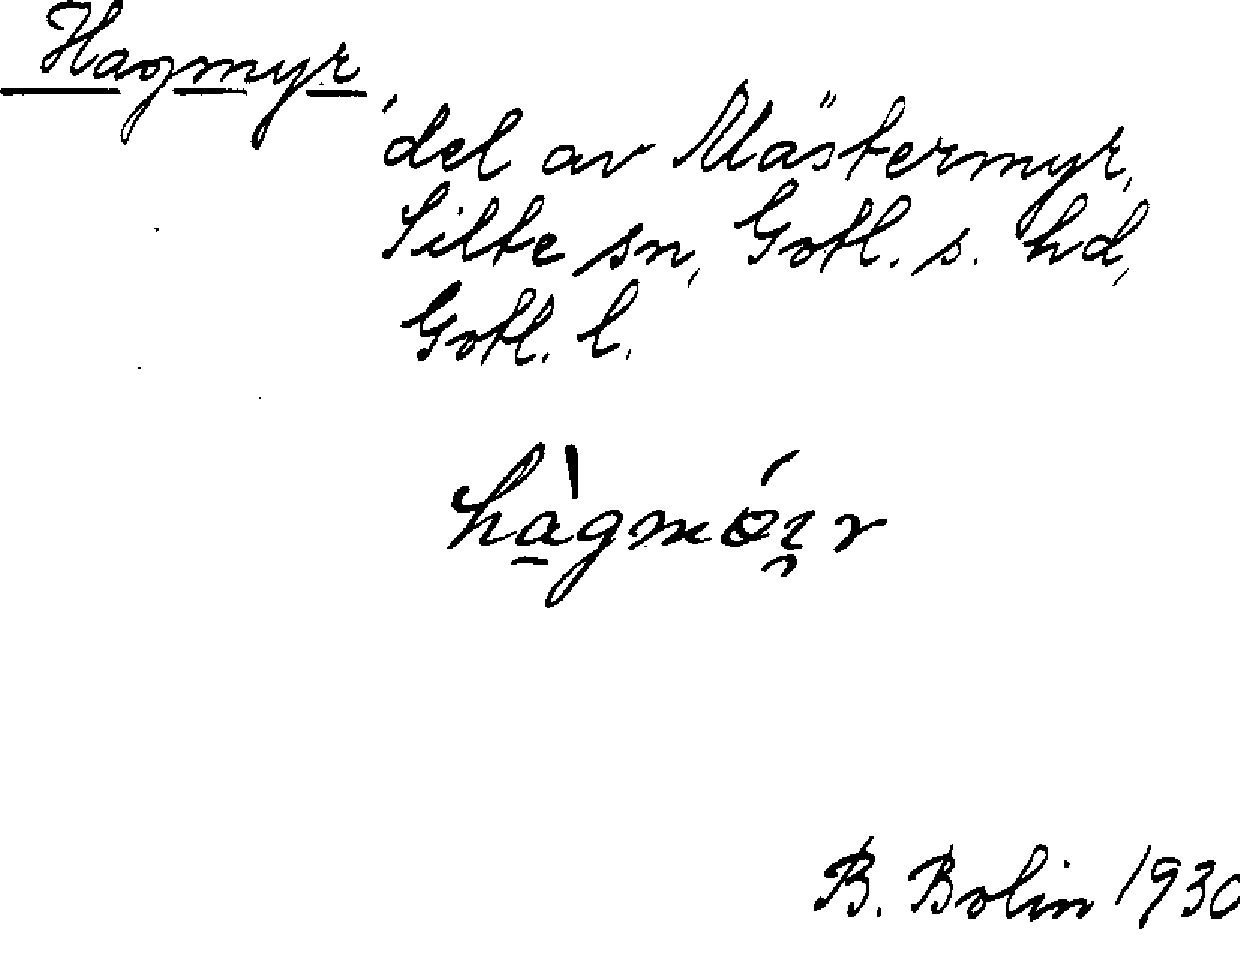 Hagmyr,
del av Mästermyr,
Silte sn, Gotl. s. hd,
Gotl. l.
hàgmóır
B. Bolin 1930